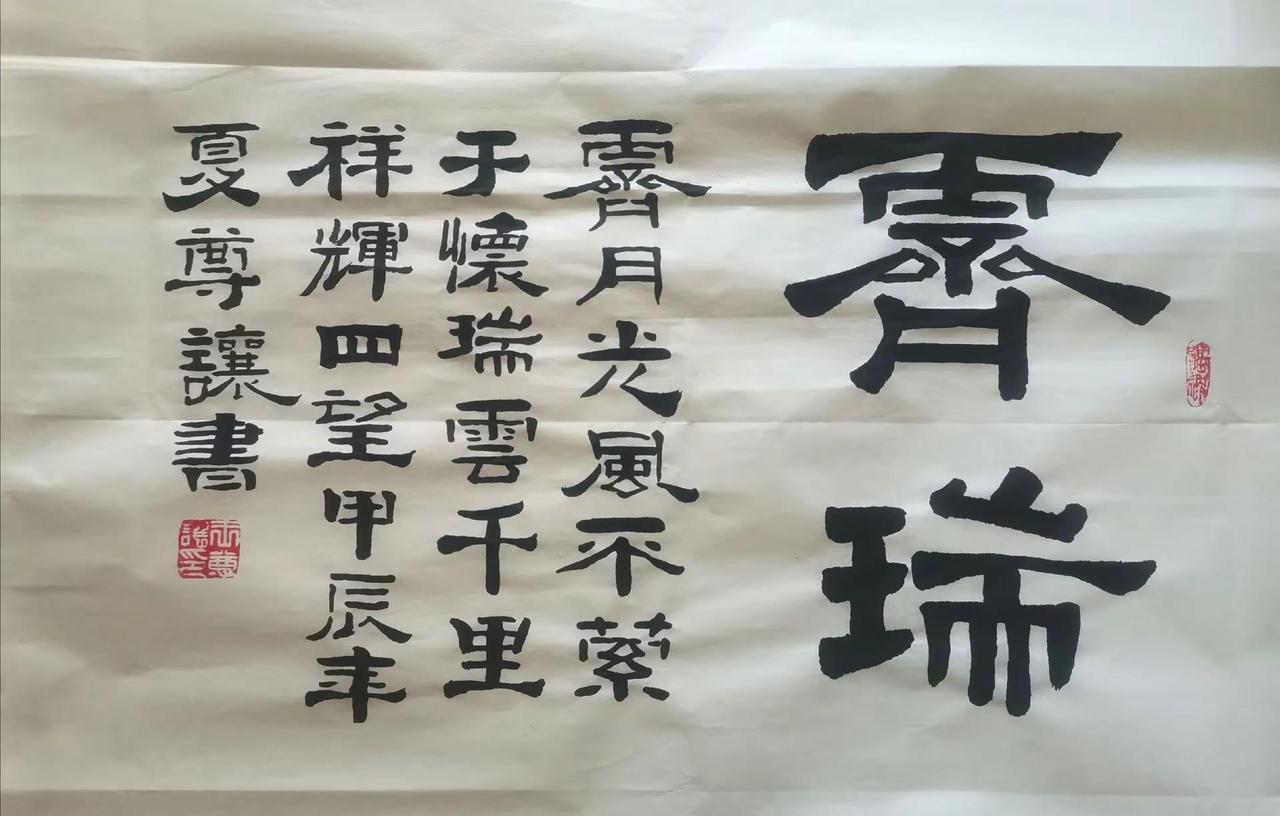 霽
瑞
霽月光風不縈
于懷瑞雲千里
祥輝四望甲辰年
夏尊讓書